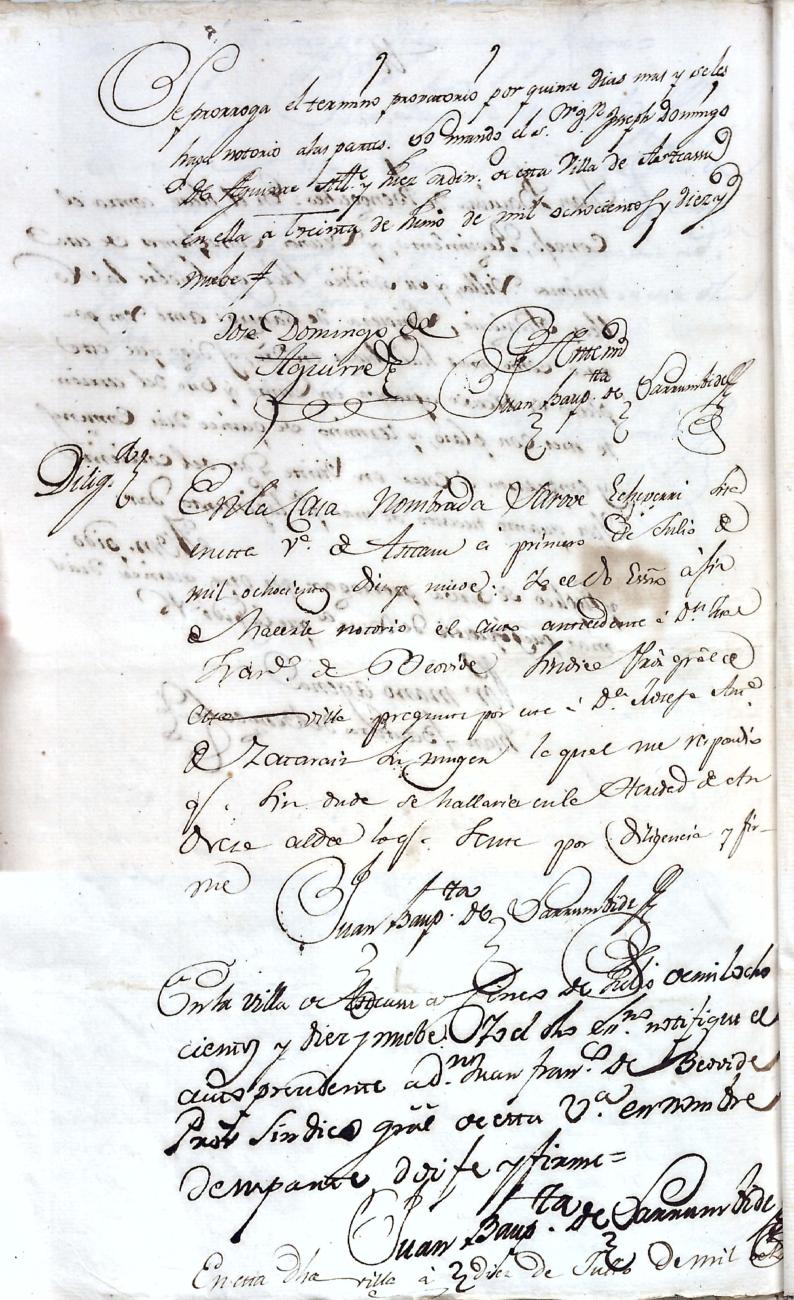 Se prorroga el termino provatorio por quince dias mas y seles
haga notorio alas partes. Lo mando el s.r Joseph Domingo
de Aguirre Alc.e y Juez ordin.o de esta Villa de Asteasu
en ella a treinta de Junio de mil ochocientos y diez y
nuebe
Jose Domingo de
Aguirre
Antemi
Juan Baup.ta de Larrumbide
Dilig.a
En la Casa nombrada Echeverri
en esta v.a de Asteasu a primero de Julio de
mil ochocientos diez y nueve: Yo el dho Essno á fin
de hacerle notorio el auto antecedente á D.n Juan
Fran.co de Beovide Sindico Pror gräl de
esta villa pregunte por este á D.a Josefa Ant.a
de Zatarain su muger la qual me respondio
q.e sin duda se hallaria en la de
aldea lo q.e siente por diligencia y fir-
me
Juan Baup.ta de Larrumbide
En la villa de Asteasu a cinco de Julio de mil ocho
cientos y diez y nuebe. Yo el dho Ess.no notifique el
auto precedente a d.n Juan Fran.co de Beovide
Pror Sindico gräl de esta V.a en nombre
de su parte doi fe y firme=
Juan Baup.ta de Larrumbide
En esta dha villa á diez de Julio de mil ocho